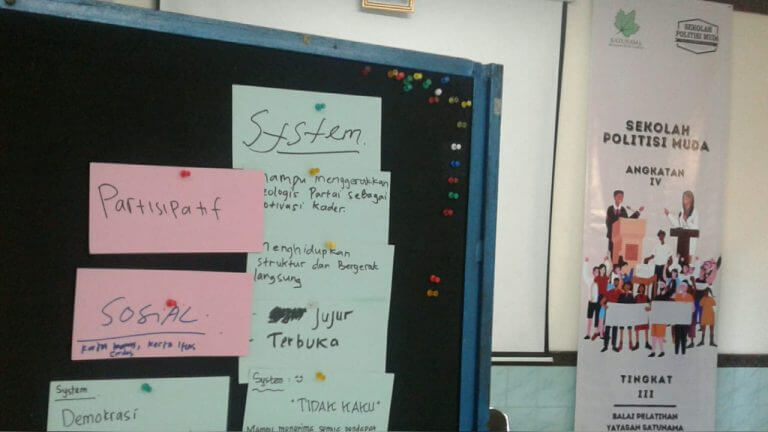 System.
Mampu menggerakkan
eologis Partai sebagai
otivasi kader.
Partisipatif
Menghidupkan
struktur dan Bergerak
langsung
SOSIAL
- Jujur
- Terbuka
System
Demokrasi
System :
"TIDAK KAKU"
Mampu menerima semua pendapat
SATUNAMA
SEKOLAH
POLITISI MUDA
SEKOLAH
POLITISI MUDA
ANGKATAN
IV
TINGKAT
III
BALAI PELATIHAN
YAYASAN SATUNAMA